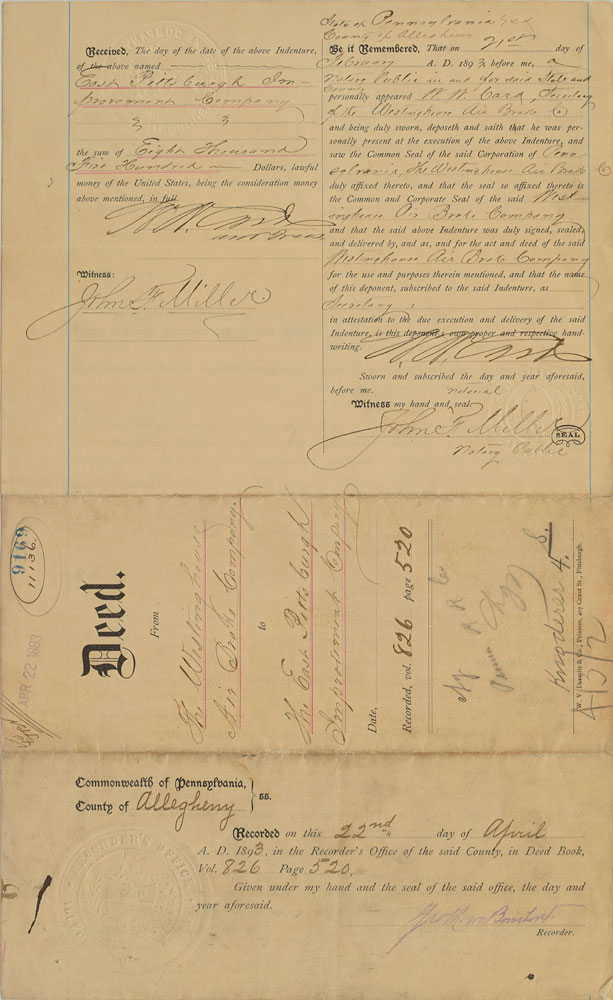 Received, The day of the date of the above Indenture,
of the above named
East Pittsburgh Im-
provement Company
the sum of Eight Thousand
Five Hundred Dollars, lawful
money of the United States, being the consideration money
above mentioned, in full.
W. W. Card
Witness:
John F. Miller
State of Pennsylvania } ss
County of Allegheny
Be it Remembered, That on 21st day of
February A. D. 1893, before me, a
Notary Public in and for said State and
County
personally appeared W. W. Card, Secretary
of the Westinghouse Air Brake Co
and being duly sworn, deposeth and saith that he was per-
sonally present at the execution of the above Indenture, and
saw the Common Seal of the said Corporation of Penn-
sylvania, The Westinghouse Air Brake Co
duly affixed thereto, and that the seal so affixed thereto is
the Common and Corporate Seal of the said West-
inghouse Air Brake Company
and that the said above Indenture was duly signed, sealed,
and delivered by, and as, and for the act and deed of the said
Westinghouse Air Brake Company
for the use and purposes therein mentioned, and that the name
of this deponent, subscribed to the said Indenture, as
Secretary,
in attestation to the due execution and delivery of the said
Indenture, is this deponent's own proper and respective hand-
writing.
W. W. Card
Sworn and subscribed the day and year aforesaid,
before me.
notarial
Witness my hand and seal
John F. Miller
SEAL
Notary Public
9169
11136.
APR 22 1893
Deed.
From
The Westinghouse
Air Brake Company.
to
The East Pittsburgh
Improvement Company
Date,
Recorded, vol. 826 page 520
W. V. Dermitt & Co., Printers, 407 Grant St., Pittsburgh.
Commonwealth of Pennsylvania, } ss.
County of Allegheny
Recorded on this 22nd day of April
A. D. 1893, in the Recorder's Office of the said County, in Deed Book,
Vol. 826 Page 520.
Given under my hand and the seal of the said office, the day and
year aforesaid.
Recorder.